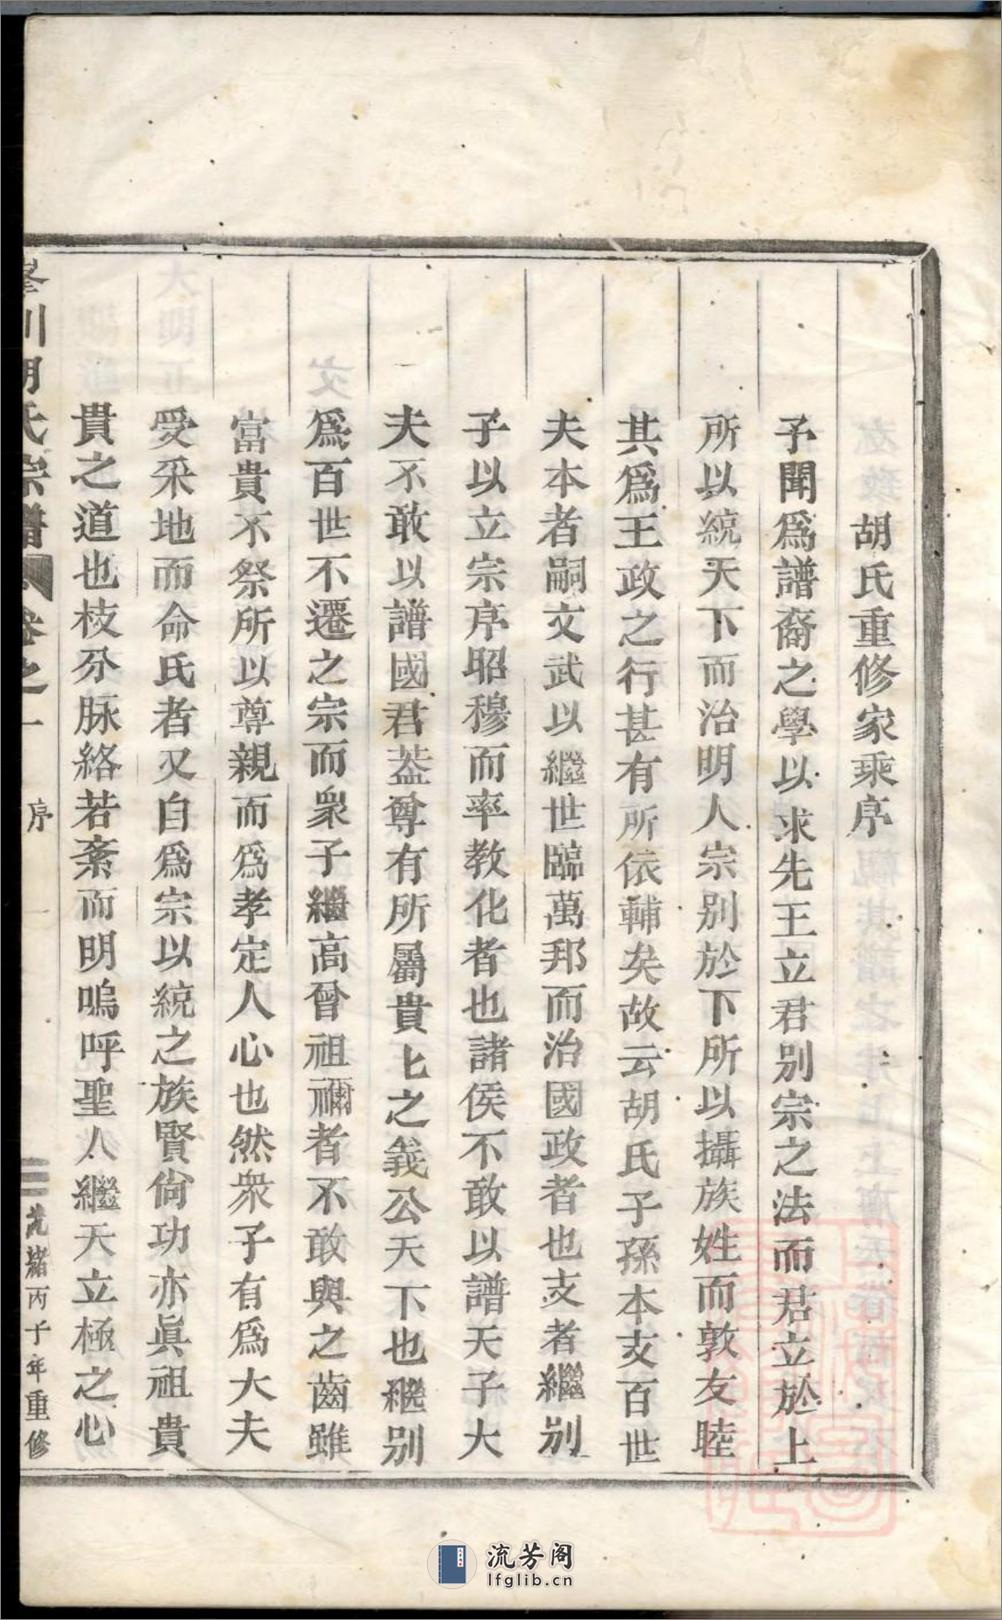 胡氏重修家乘序
予聞爲譜裔之學以求先王立君別宗之法而君立於上
所以統天下而治明人宗別於下所以攝族姓而敦友睦
其爲王政之行甚有所依輔矣故云胡氏子孫本支百世
夫本者嗣文武以繼世臨萬邦而治國政者也支者繼別
子以立宗序昭穆而率教化者也諸侯不敢以譜天子大
夫不敢以譜國君葢尊有所屬貴匕之義公天下也繼別
爲百世不遷之宗而衆子繼高曾祖禰者不敢與之齒雖
富貴不祭所以尊親而爲孝定人心也然衆子有爲大夫
受采地而命氏者又自爲宗以統之族賢尙功亦眞祖貴
貴之道也枝分脉絡若紊而明嗚呼聖人繼天立極之心
川胡氏宗譜 卷之一 序 一 光緒丙子年重修
流芳阁
lfglib.cn